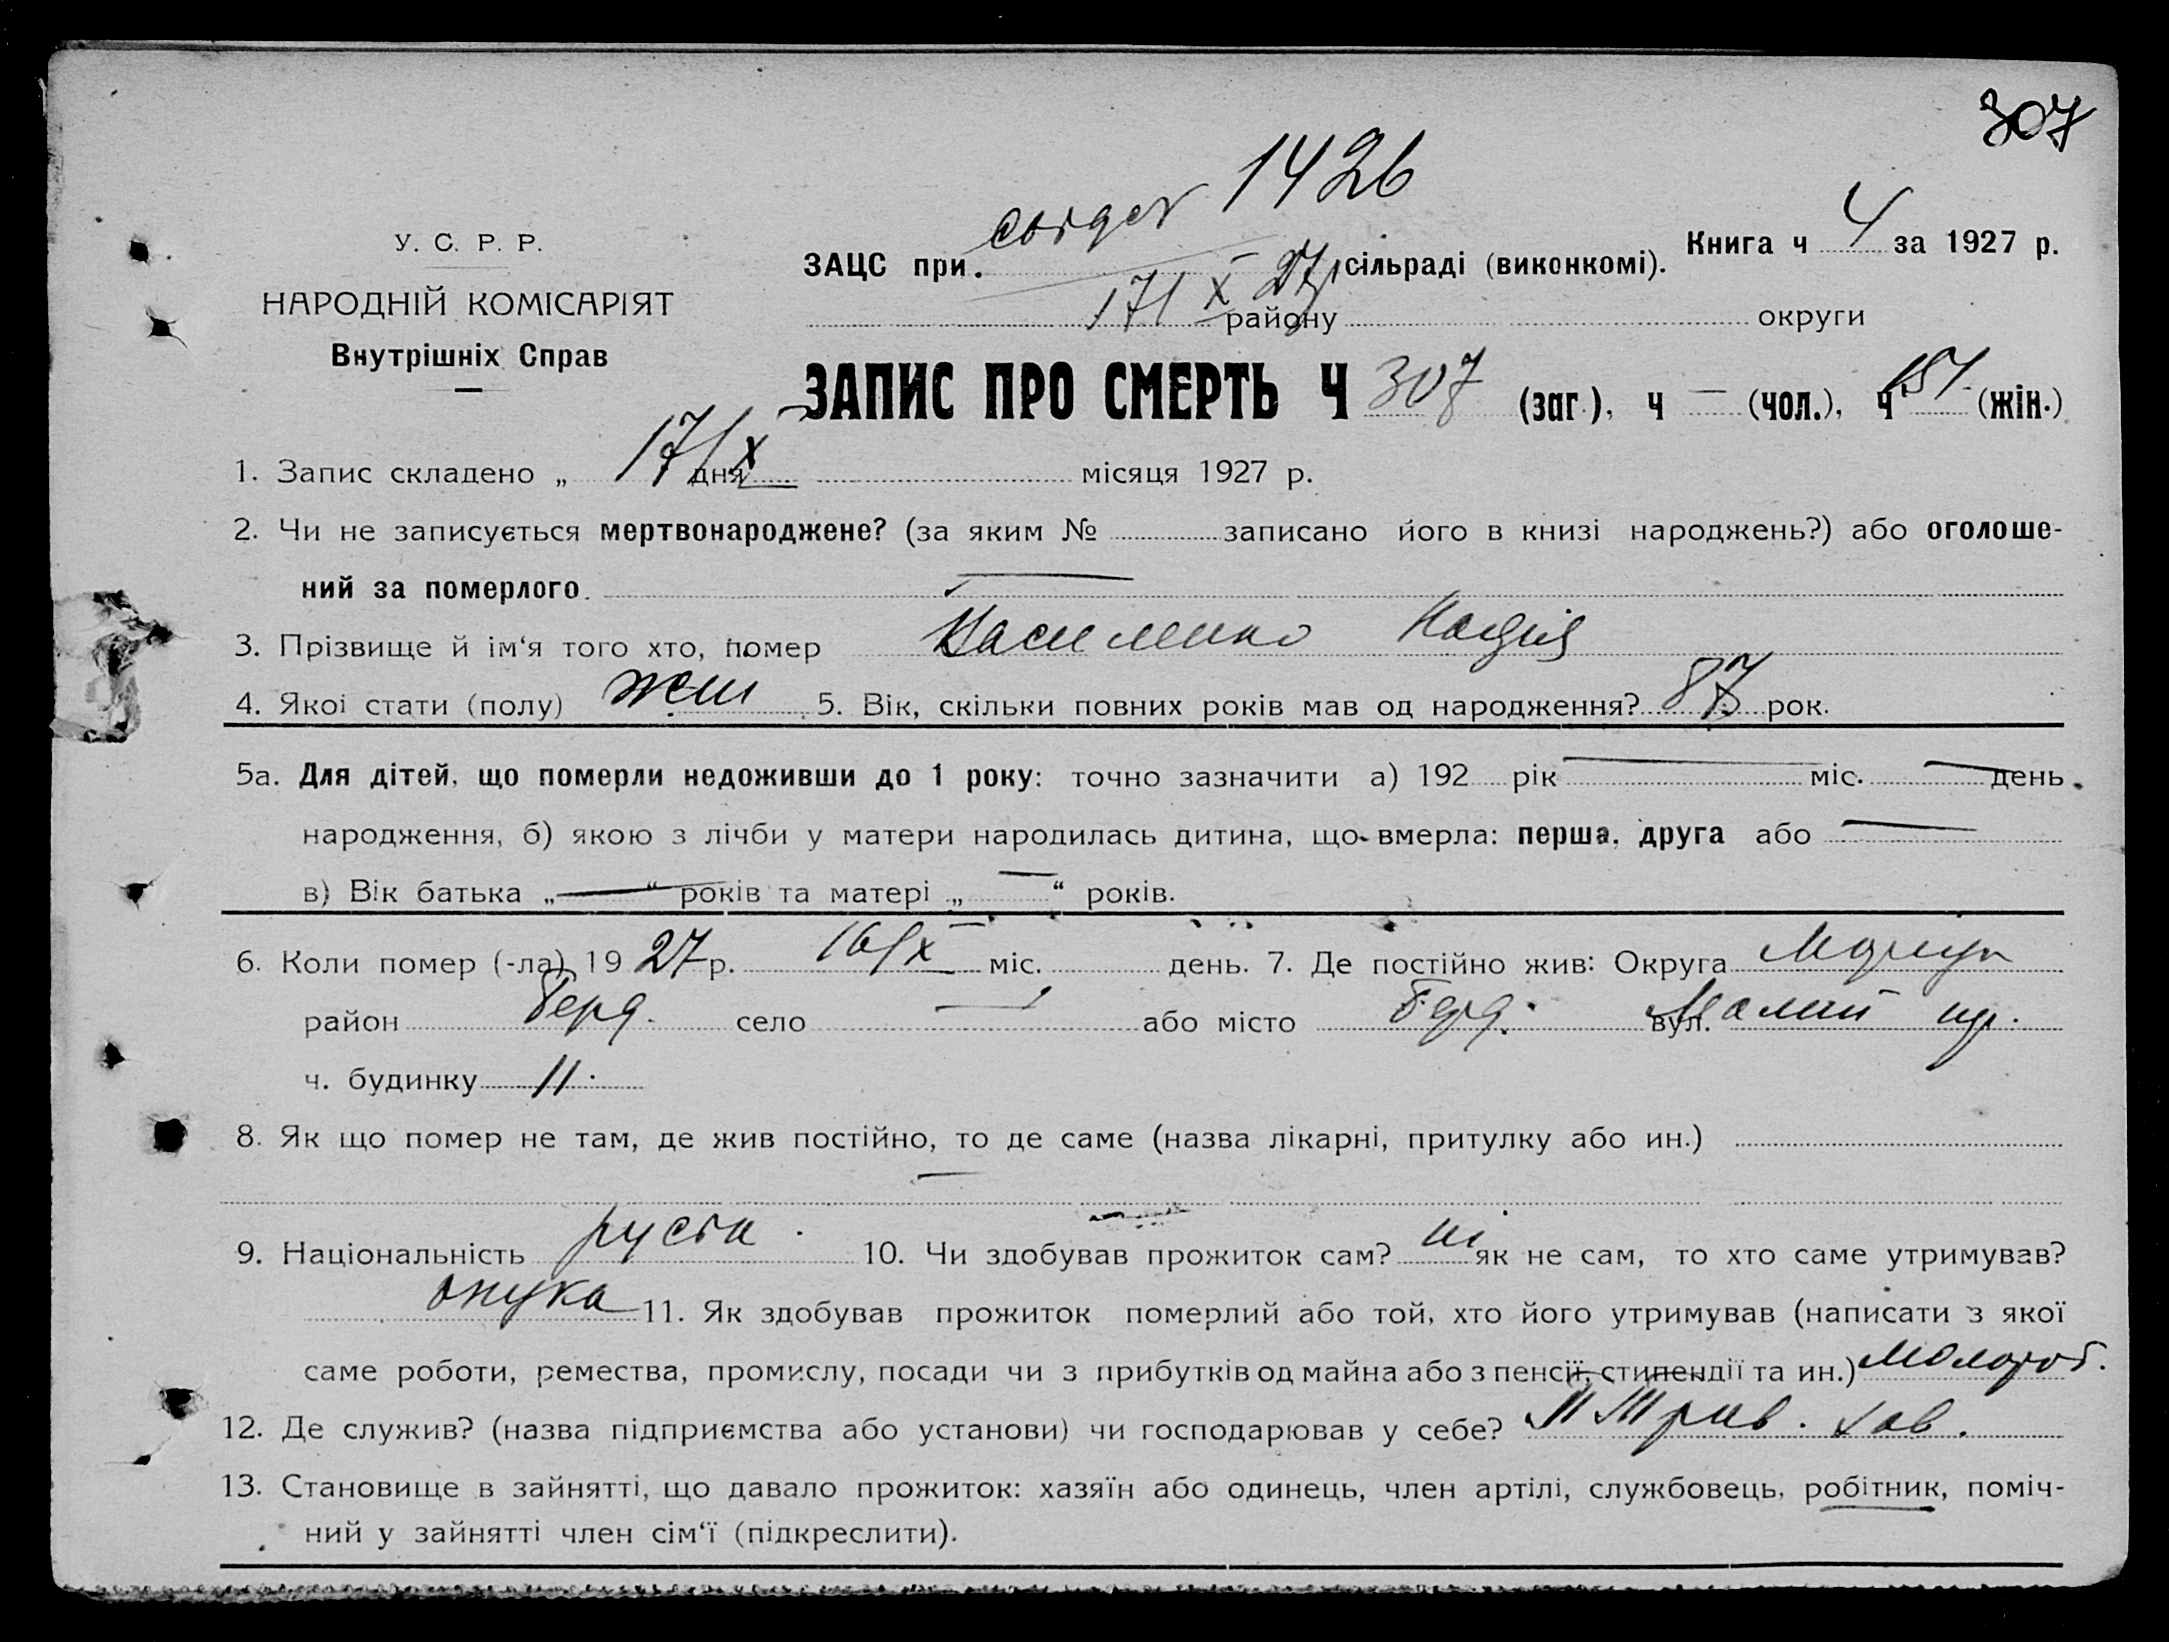 307
1426
У. С. Р. Р.
НАРОДНІЙ КОМІСАРІЯТ
Внутрішніх Справ
ЗАЦС при сільраді (виконкомі). Книга ч 4 за 1927 р.
17/X 27р району округи
ЗАПИС ПРО СМЕРТЬ Ч 307 (заг.), ч — (чол.), ч 151 (жін.)
1. Запис складено „ 17/X дня місяця 1927 р.
2. Чи не записується мертвонароджене? (за яким № записано його в книзі народжень?) або оголоше-
ний за померлого. —
3. Прізвище й ім‘я того хто, помер Василенко Надія
4. Якої стати (полу) жін 5. Вік, скільки повних років мав од народження? 87 рок.
5а. Для дітей, що померли недоживши до 1 року: точно зазначити а) 192 рік — міс. — день
народження, б) якою з лічби у матери народилась дитина, що вмерла: перша, друга або —
в) Вік батька „—“ років та матері „—“ років.
6. Коли помер (-ла) 1927 р. 16/X міс. день. 7. Де постійно жив: Округа Маріуп
район Берд. село — або місто Берд. вул. Малий пр.
ч. будинку 11.
8. Як що помер не там, де жив постійно, то де саме (назва лікарні, притулку або ин.)
—
9. Національність руська. 10. Чи здобував прожиток сам? ні як не сам, то хто саме утримував?
онука 11. Як здобував прожиток померлий або той, хто його утримував (написати з якої
саме роботи, ремества, промислу, посади чи з прибутків од майна або з пенсії, стипендії та ин.) молотоб.
12. Де служив? (назва підприємства або установи) чи господарював у себе?
13. Становище в зайнятті, що давало прожиток: хазяїн або одинець, член артілі, службовець, робітник, поміч-
ний у зайнятті член сім‘ї (підкреслити).